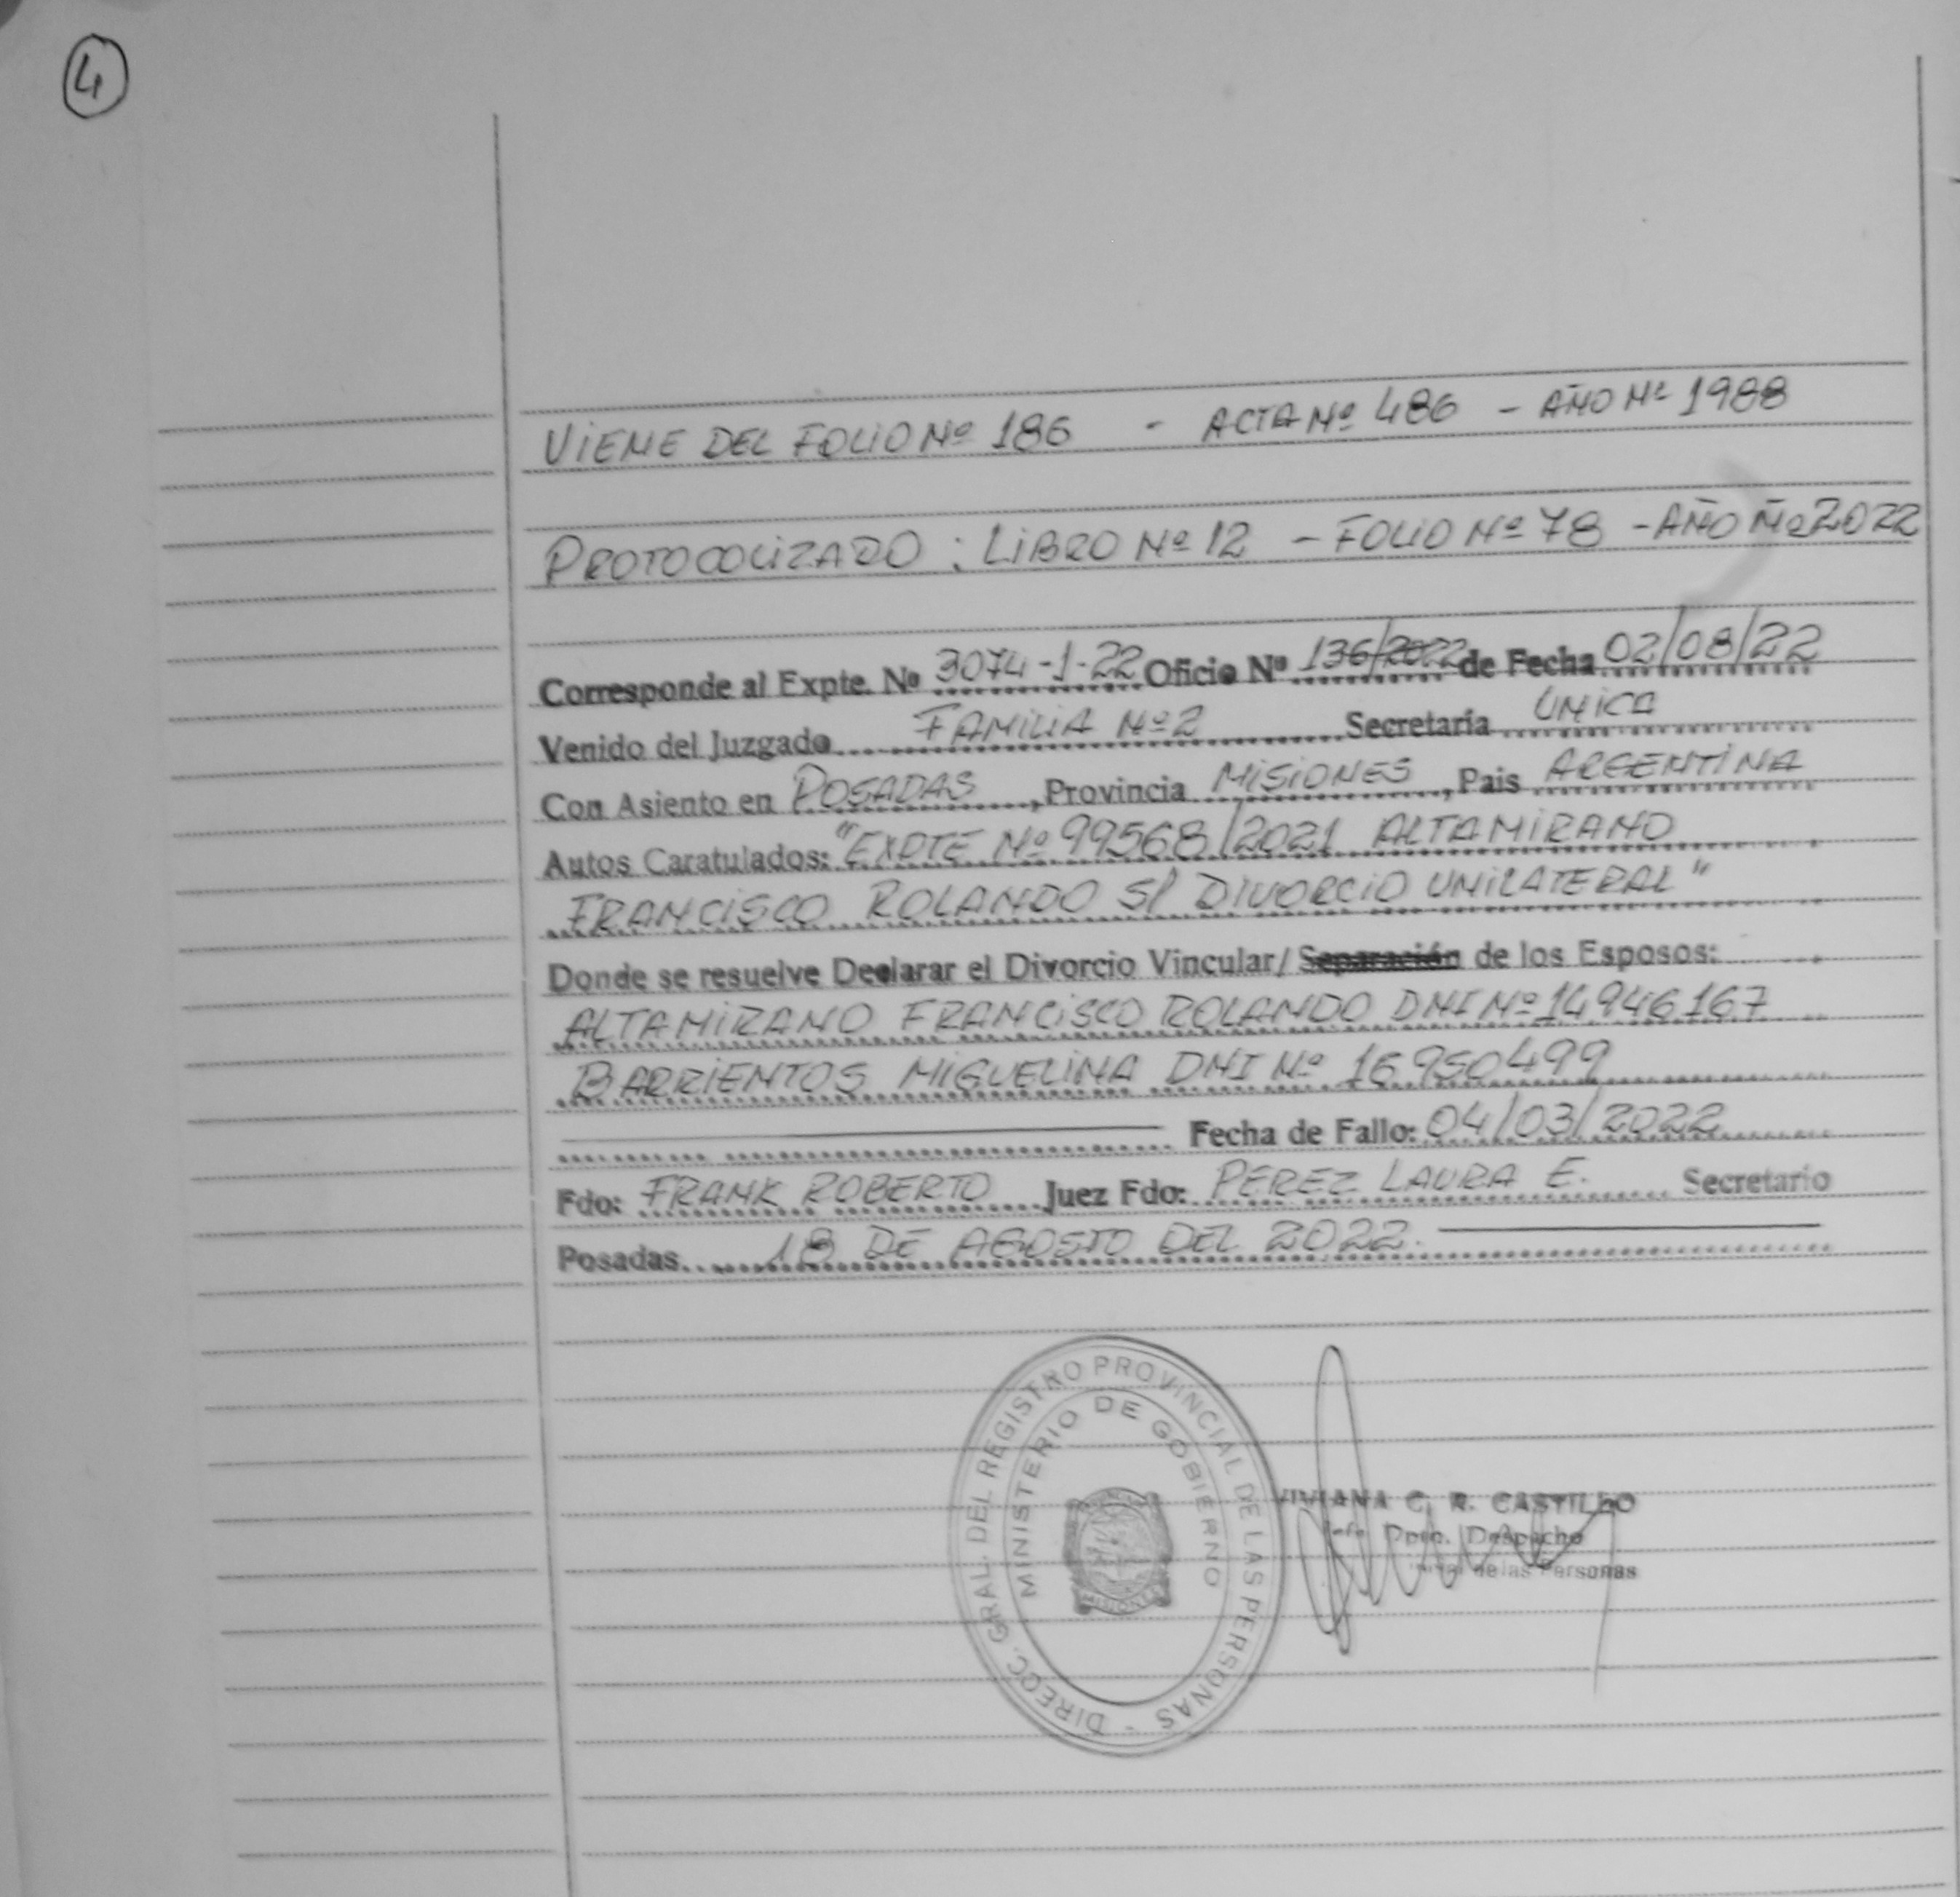 4
VIENE DEL FOLIO Nº 186 - ACTA Nº 486 - AÑO Nº 1988
PROTOCOLIZADO : LIBRO Nº 12 - FOLIO Nº 78 - AÑO Nº 2022
Corresponde al Expte. Nº 3074-1-22 Oficio Nº 136/2022 de Fecha 02/08/22
Venido del Juzgado FAMILIA Nº 2 Secretaría UNICA
Con Asiento en POSADAS, Provincia MISIONES, Pais ARGENTINA
Autos Caratulados: "EXPTE Nº 99568/2021 ALTAMIRANO
FRANCISCO ROLANDO S/ DIVORCIO UNILATERAL"
Donde se resuelve Declarar el Divorcio Vincular/ Separación de los Esposos:
ALTAMIRANO FRANCISCO ROLANDO DNI Nº 14946167
BARRIENTOS MIGUELINA DNI Nº 16950499
Fecha de Fallo: 04/03/2022
Fdo: FRANK ROBERTO Juez Fdo: PEREZ LAURA E. Secretario
Posadas 18 DE AGOSTO DEL 2022.
DIRECC. GRAL. DEL REGISTRO PROVINCIAL DE LAS PERSONAS -
MINISTERIO DE GOBIERNO
MISIONES
VIVIANA C. R. CASTILLO
Jefe Dpto. Despacho
de las Personas